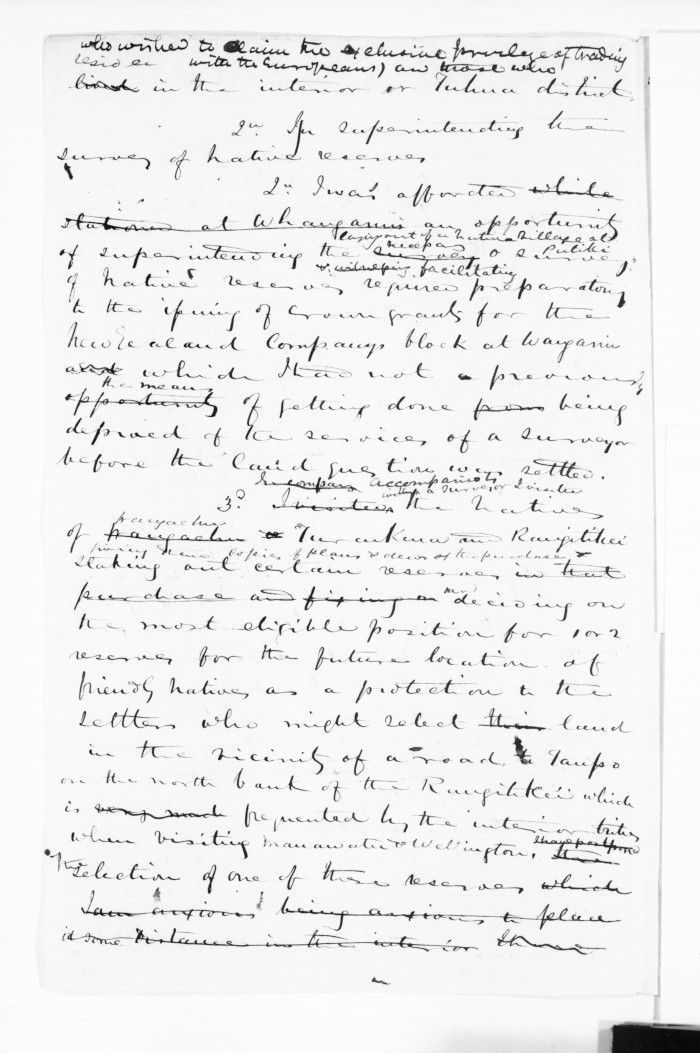 who wished to claim the exclusive privilege of trading
reside with the Europeans) and those who
lived in the interior or Tuhua district.
2n In superintending the
survey of native reserves
2n I was afforded while
stationed at Whanganui an opportunity
of a native village at
of superintending the survey
& facilitating
of native reserves required preparatory
to the issuing of crown grants for the
New Zealand Companys block at Wanganui
and which I had not previously
the means
opportunity of getting done from being
deprived of the services of a surveyor
before the land question was settled.
In company accompanied
with a surveyor
3d I visited the natives
of Turakina and Rangitikei
giving them copies of plans & deeds of the purchase &
staking out certain reserves in that
purchase and fixing on deciding on
the most eligible position for 1 or 2
reserves for the future location of
friendly natives as a protection to the
settlers who might select their land
in the vicinity of a road to Taupo
on the north bank of the Rangitikei which
is very much frequented by the interior tribes
when visiting Manawatu & Wellington.
I have postponed
The selection of one of these reserves which
I am anxious being anxious to place
it some distance in the interior